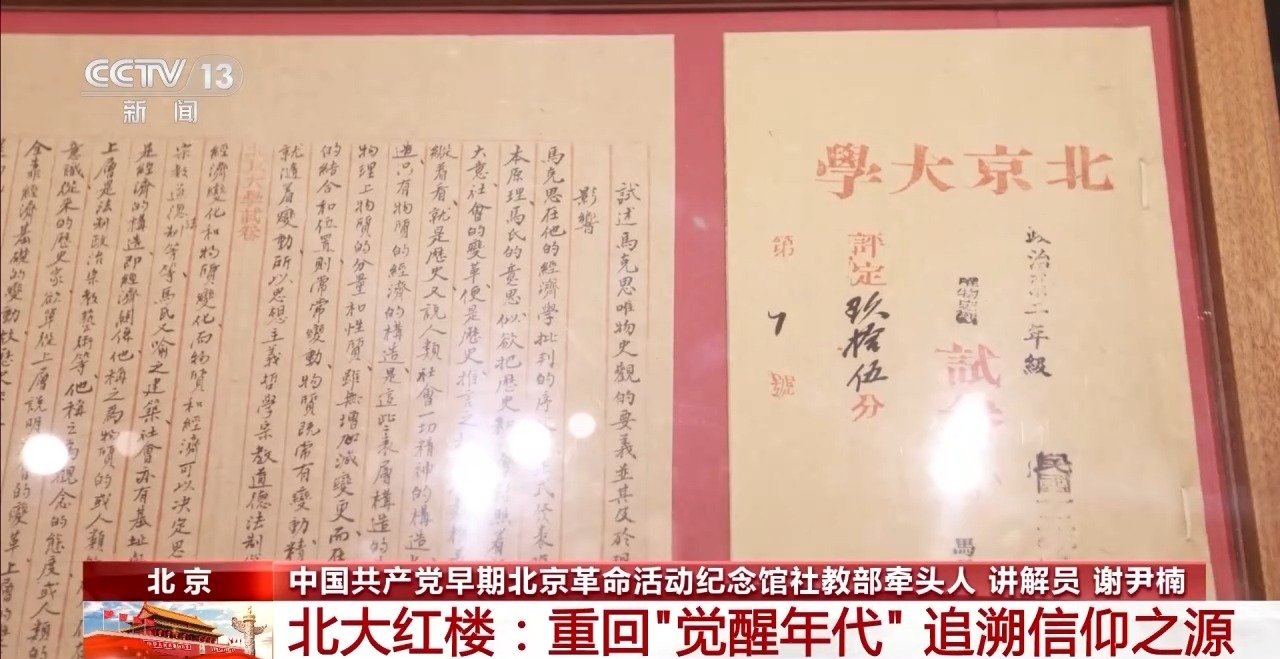 CCTV 13
新闻
北京大學
政治 一年級
唯物史觀
試
民國
馬
評定玖拾伍分
第7號
試述馬克思唯物史觀的要義並其及於現
影響
馬克思在他的經濟學批判的序
本原理馬氏的意思似欲把歷史和 照着
大意社會的變革便是歷史推言之
縱着看就是歷史又說人類社會一切精神的構造
造只有物質的經濟的構造是這些表層構造的
物理上物質的分量和性質雖無增加減變更而在
的結合和位置則常常變動、物質既常有變動、精
就隨着變動、所以思想主義哲學宗教道德法制
大學試卷
經濟變化和物質變化而物質和經濟可以決定思
宗教道德法制等等馬氏又喻之建築社會亦有基址
是經濟的構造、即經濟關係他稱之為物質的或人類
上層是法制政治宗教藝術等、他稱之為觀念的態度或人類
意識從來的歷史家欲單從上層說明 的變革
全靠經濟基礎的變動故歷
北京
中国共产党早期北京革命活动纪念馆社教部牵头人 讲解员 谢尹楠
北大红楼：重回"觉醒年代" 追溯信仰之源